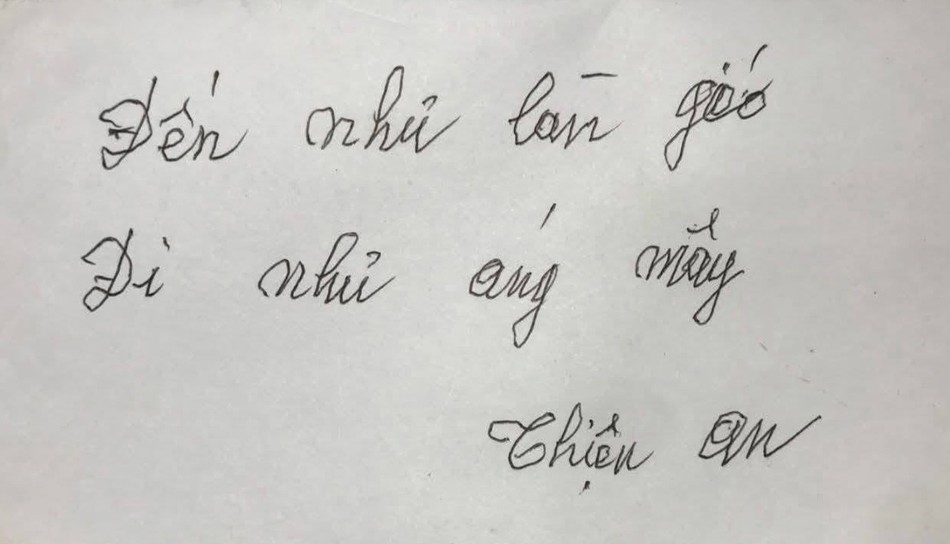 Đến như làn gió
Đi như áng mây
Thiện An